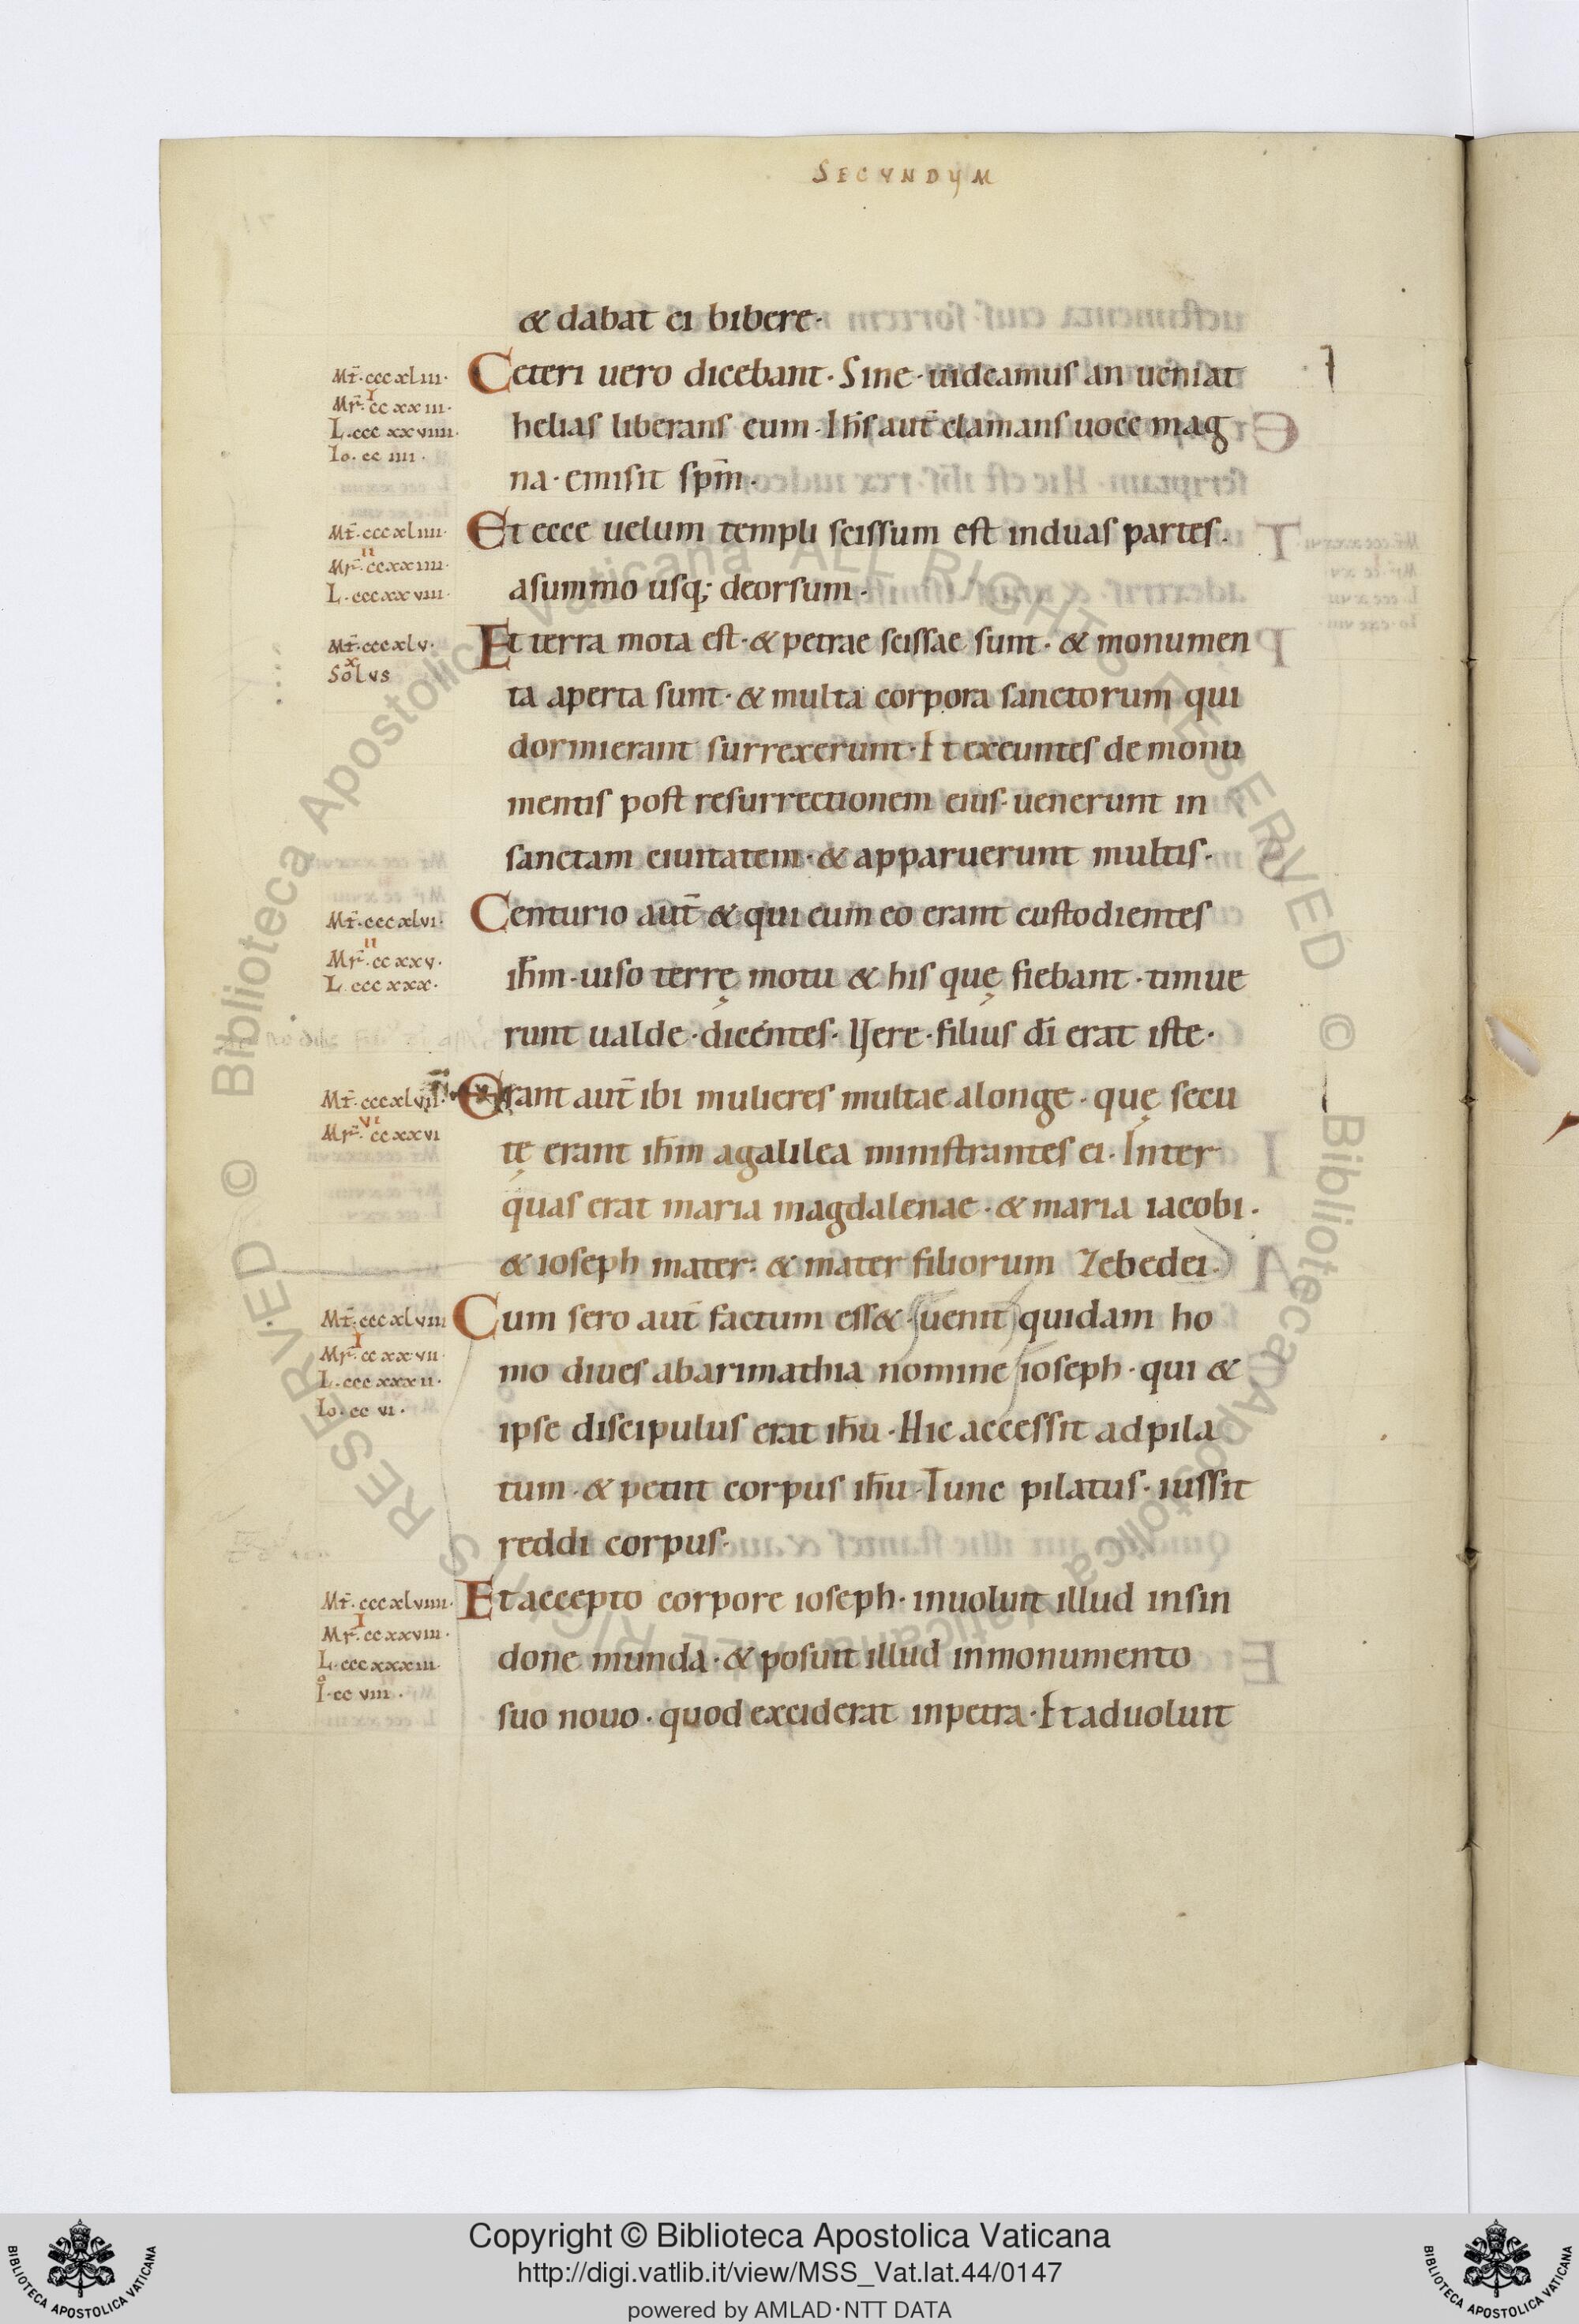 SECVNDVM
& dabat ei bibere·
Ceteri uero dicebant· Sine· uideamus an ueniat
helias liberans eum· Ih̄s aut̄ clamans uoce mag
na· emisit sp̄m·
Et ecce uelum templi scissum est induas partes·
asummo usq; deorsum·
Et terra mota est· & petrae scissae sunt· & monumen
ta aperta sunt· & multa corpora sanctorum qui
dormierant surrexerunt· Et exeuntes de monu
mentis post resurrectionem eius· uenerunt in
sanctam ciuitatem· & apparuerunt multis·
Centurio aut̄ & qui cum eo erant custodientes
ih̄m· uiso terrę motu & his quę fiebant· timue
runt ualde· dicentes· Vere· filius d̄i erat iste·
Erant aut̄ ibi mulieres multae alonge· quę secu
tę erant ih̄m agalilea ministrantes ei· Inter
quas erat maria magdalenae· & maria iacobi·
& ioseph mater· & mater filiorum Zebedei·
Cum sero aut̄ factum ess& uenit quidam ho
mo diues abarimathia nomine ioseph· qui &
ipse discipulus erat ih̄u· Hic accessit ad pila
tum· & petiit corpus ih̄u· Tunc pilatus· iussit
reddi corpus·
Et accepto corpore ioseph· inuoluit illud insin
done munda· & posuit illud inmonumento
suo nouo· quod exciderat inpetra· Et aduoluit
Mt̄·cccxliii·
I
Mr̄·ccxxiii·
L·cccxxviiii·
Io·cciiii·
Mt̄·cccxliiii·
II
Mr̄·ccxxiiii·
L·cccxxviii·
Mt̄·cccxlv·
X
Solvs
Mt̄·cccxlvi·
II
Mr̄·ccxxv·
L·cccxxx·
Mt̄·cccxlvii·
VI
Mr̄·ccxxvi
Mt̄·cccxlviii
I
Mr̄·ccxxvii·
L·cccxxxii·
Io·ccvi·
Mt̄·cccxlviiii·
I
Mr̄·ccxxviii·
L·cccxxxiii·
I·ccviii·
© Biblioteca Apostolica Vaticana ALL RIGHTS RESERVED © Biblioteca Apostolica Vaticana ALL RIGHTS RESERVED
Copyright © Biblioteca Apostolica Vaticana
http://digi.vatlib.it/view/MSS_Vat.lat.44/0147
powered by AMLAD·NTT DATA
BIBLIOTECA APOSTOLICA VATICANA
BIBLIOTECA APOSTOLICA VATICANA